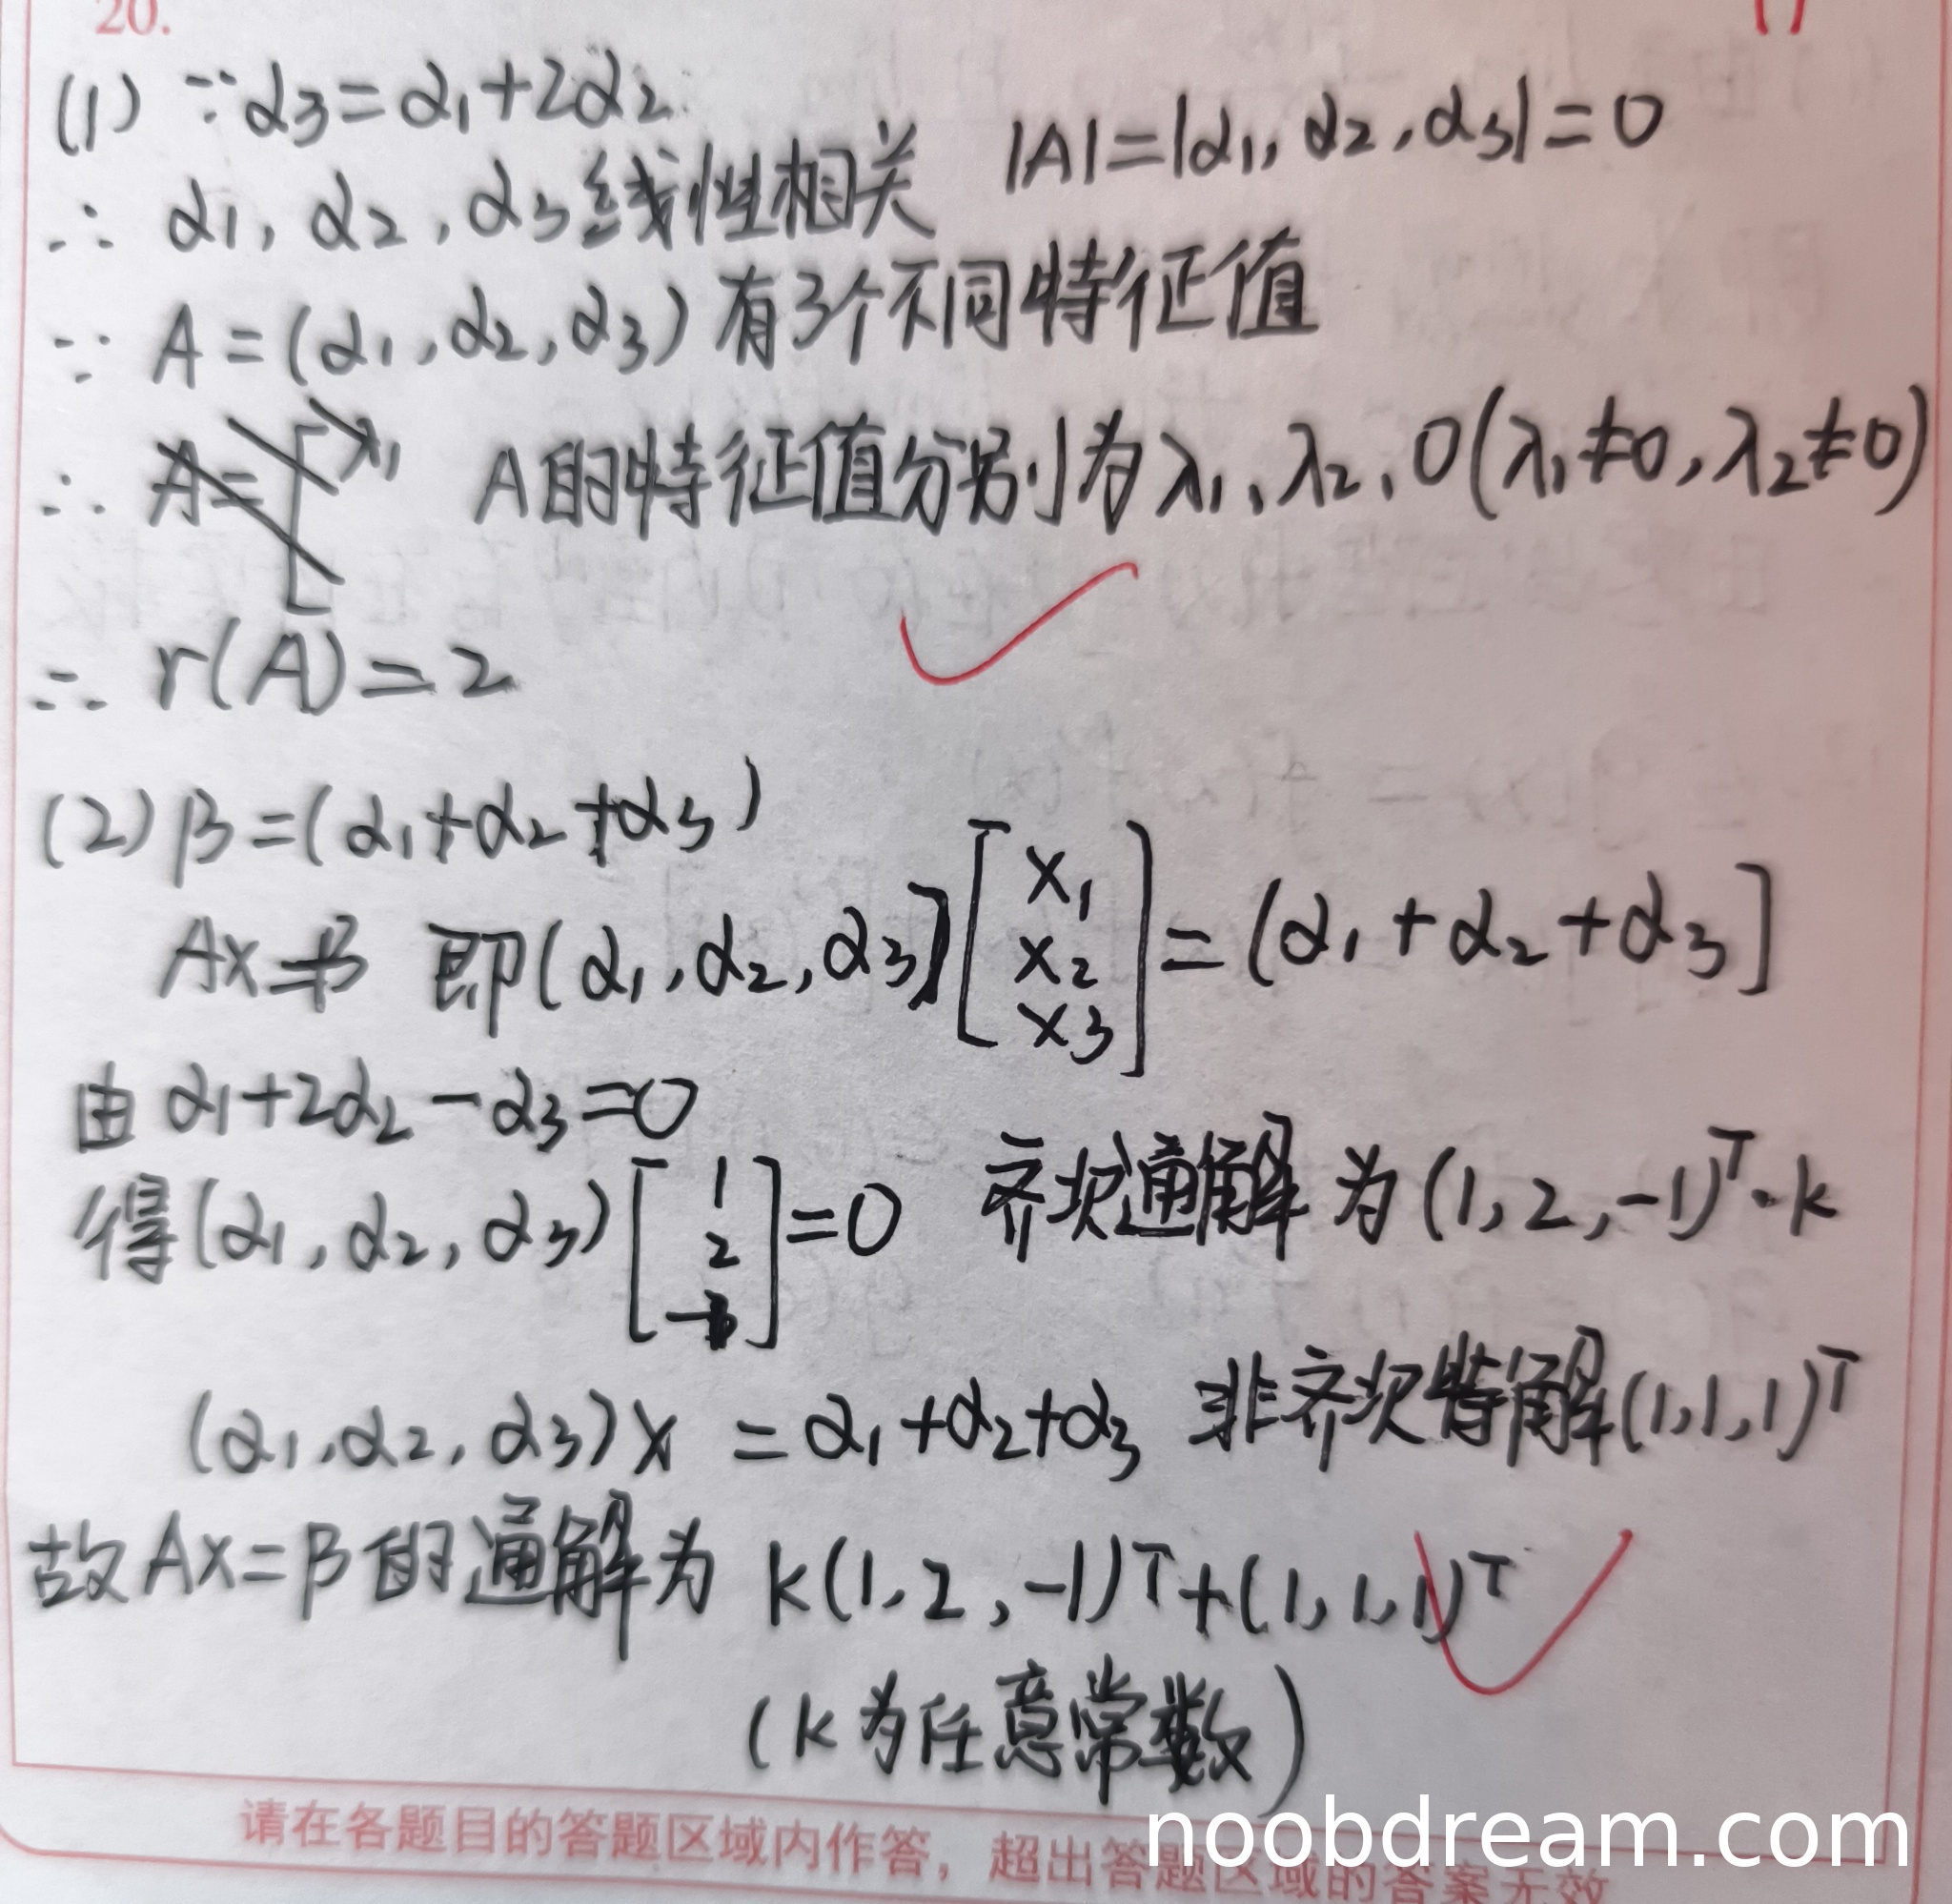 20.
(1) ∵α3=α1+2α2
∴ α1, α2, α3线性相关 |A|=|α1, α2, α3|=0
∵ A=(α1, α2, α3) 有3个不同特征值
∴ A的特征值分别为λ1、λ2、0(λ1≠0, λ2≠0)
∴ r(A)=2
(2) β=(α1+α2+α3)
Ax=β 即(α1, α2, α3)[x1 x2 x3]=(α1+α2+α3]
由 α1+2α2-α3=0
得(α1, α2, α3)[1 2 -1]=0 齐次通解为(1, 2, -1)ᵀ·k
(α1, α2, α3)x = α1+α2+α3 非齐次特解(1,1,1)ᵀ
故Ax=β的通解为 k(1, 2, -1)ᵀ+(1, 1, 1)ᵀ
(k为任意常数)
请在各题目的答题区域内作答，超出答题区域的答案无效
noobdream.com